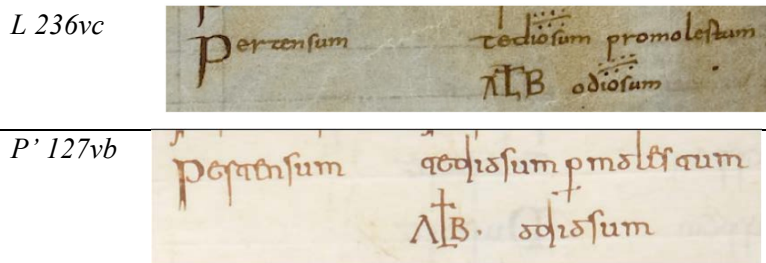 L 236vc
Pertensum tediosum promolestum
ALB odiosum
P' 127vb
Pertensum tediosum pmolestum
ALB. odiosum